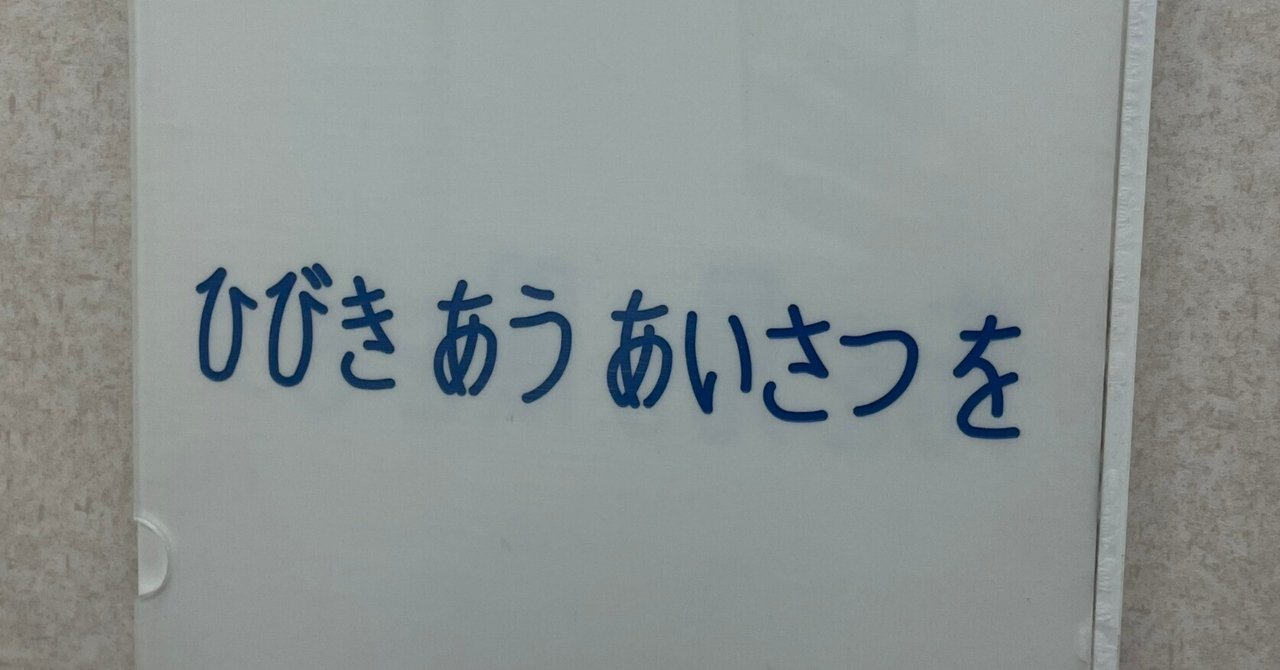 ひびき あう あいさつ を